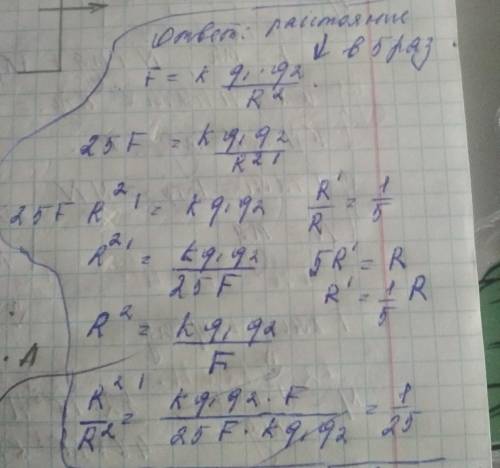 Ответ: расстояние
↓ в 5 раз.
F = k q₁·q₂ / R²
25F = k q₁q₂ / R²'
25F R²' = k q₁q₂
R'/R = 1/5
R²' = k q₁q₂ / 25F
5R' = R
R' = 1/5 R
R² = k q₁q₂ / F
R²'/R² = k q₁q₂·F / 25F·k q₁q₂ = 1/25
· А